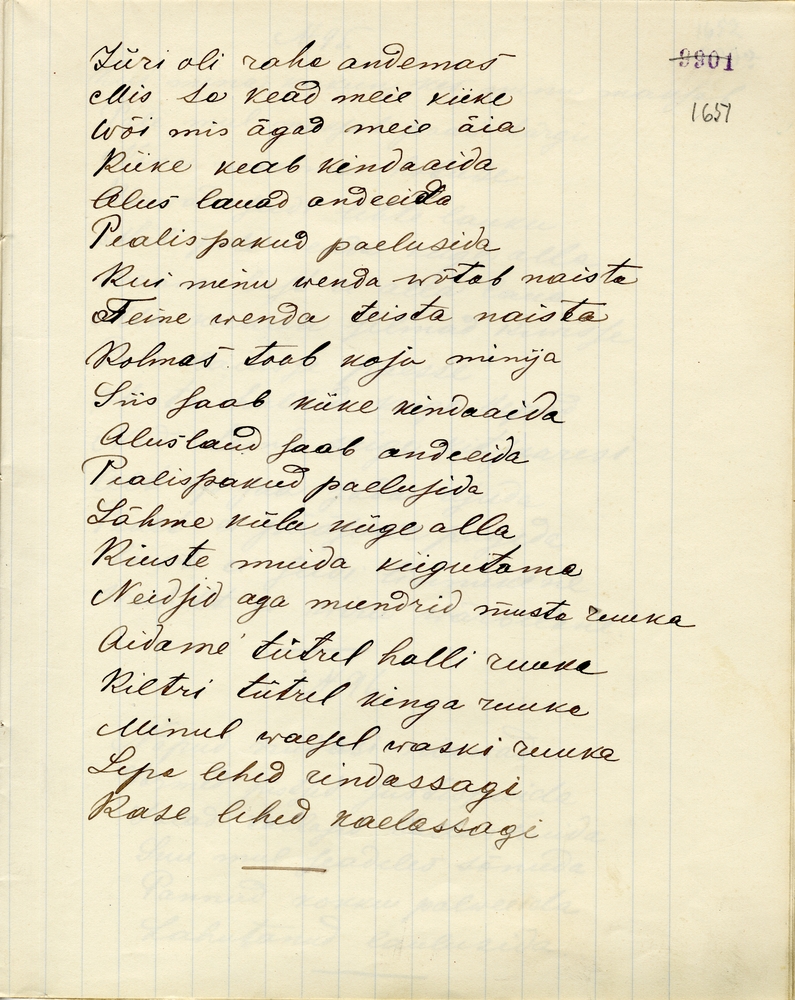 9901
1651
Jüri oli raha andemas
Mis sa kead meie kiike
Wõi mis ägad meie äia
Kiike keab kindaaida
Alus lauad andeeida
Pealispakud paelusida
Kui minu wenda wõtab naista
Teine wenda teista naista
Kolmas toob koju minija
Siis saab kiike kindaaida
Aluslaud saab andeeida
Pealispakud paelusida
Lähme küla kiige alla
Kiuste muida kiigutama
Neidsid aga mundrid musta ruuka
Aidame tütrel halli ruuka
Kiltri tütrel kinga ruuka
Minul waesel waski ruuka
Lepa lehed rindassagi
Kase lehed kaelassagi